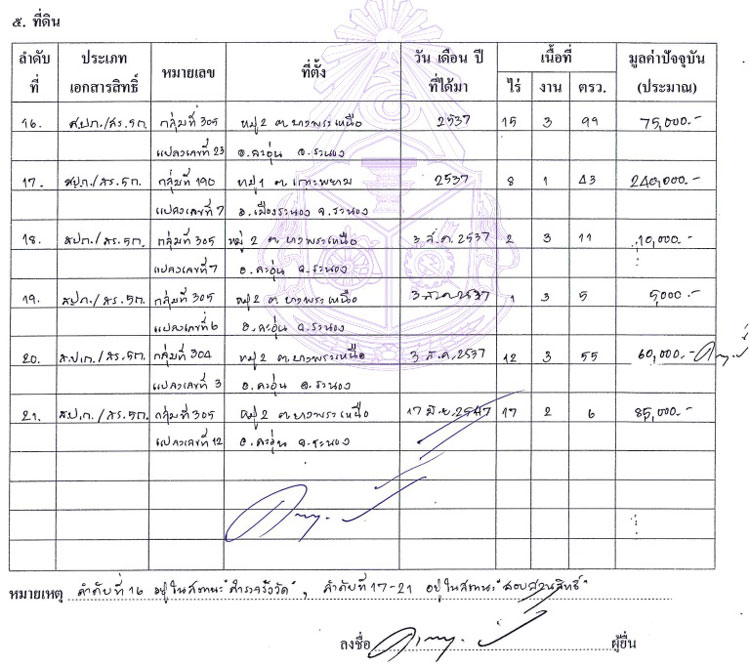 ๕. ที่ดิน
ลำดับที่ ประเภทเอกสารสิทธิ์ หมายเลข ที่ตั้ง วัน เดือน ปี ที่ได้มา เนื้อที่ ไร่ งาน ตรว. มูลค่าปัจจุบัน (ประมาณ)
16. ส.ป.ก./สร.5ก. กลุ่มที่ 305 หมู่ 2 ต.บางพระเหนือ 2537 15 3 99 75,000.-
แปลงเลขที่ 23 อ.ละอุ่น จ.ระนอง
17. สปก./สร.5ก. กลุ่มที่ 190 หมู่ 1 ต.เกาะพยาม 2537 8 1 43 240,000.-
แปลงเลขที่ 7 อ.เมืองระนอง จ.ระนอง
18. สปก./สร.5ก. กลุ่มที่ 305 หมู่ 2 ต.บางพระเหนือ 3 ส.ค. 2537 2 3 11 10,000.-
แปลงเลขที่ 7 อ.ละอุ่น จ.ระนอง
19. สปก./สร.5ก. กลุ่มที่ 305 หมู่ 2 ต.บางพระเหนือ 3 ส.ค. 2537 1 3 5 5,000.-
แปลงเลขที่ 6 อ.ละอุ่น จ.ระนอง
20. ส.ป.ก./สร.5ก. กลุ่มที่ 304 หมู่ 2 ต.บางพระเหนือ 3 ส.ค. 2537 12 3 55 60,000.-
แปลงเลขที่ 3 อ.ละอุ่น จ.ระนอง
21. ส.ป.ก./สร.5ก. กลุ่มที่ 305 หมู่ 2 ต.บางพระเหนือ 17 มิ.ย. 2547 17 2 6 85,000.-
แปลงเลขที่ 12 อ.ละอุ่น จ.ระนอง
หมายเหตุ ลำดับที่ 16 อยู่ในสถานะ "สำรวจรังวัด", ลำดับที่ 17-21 อยู่ในสถานะ "สอบสวนสิทธิ์"
ลงชื่อ ผู้ยื่น